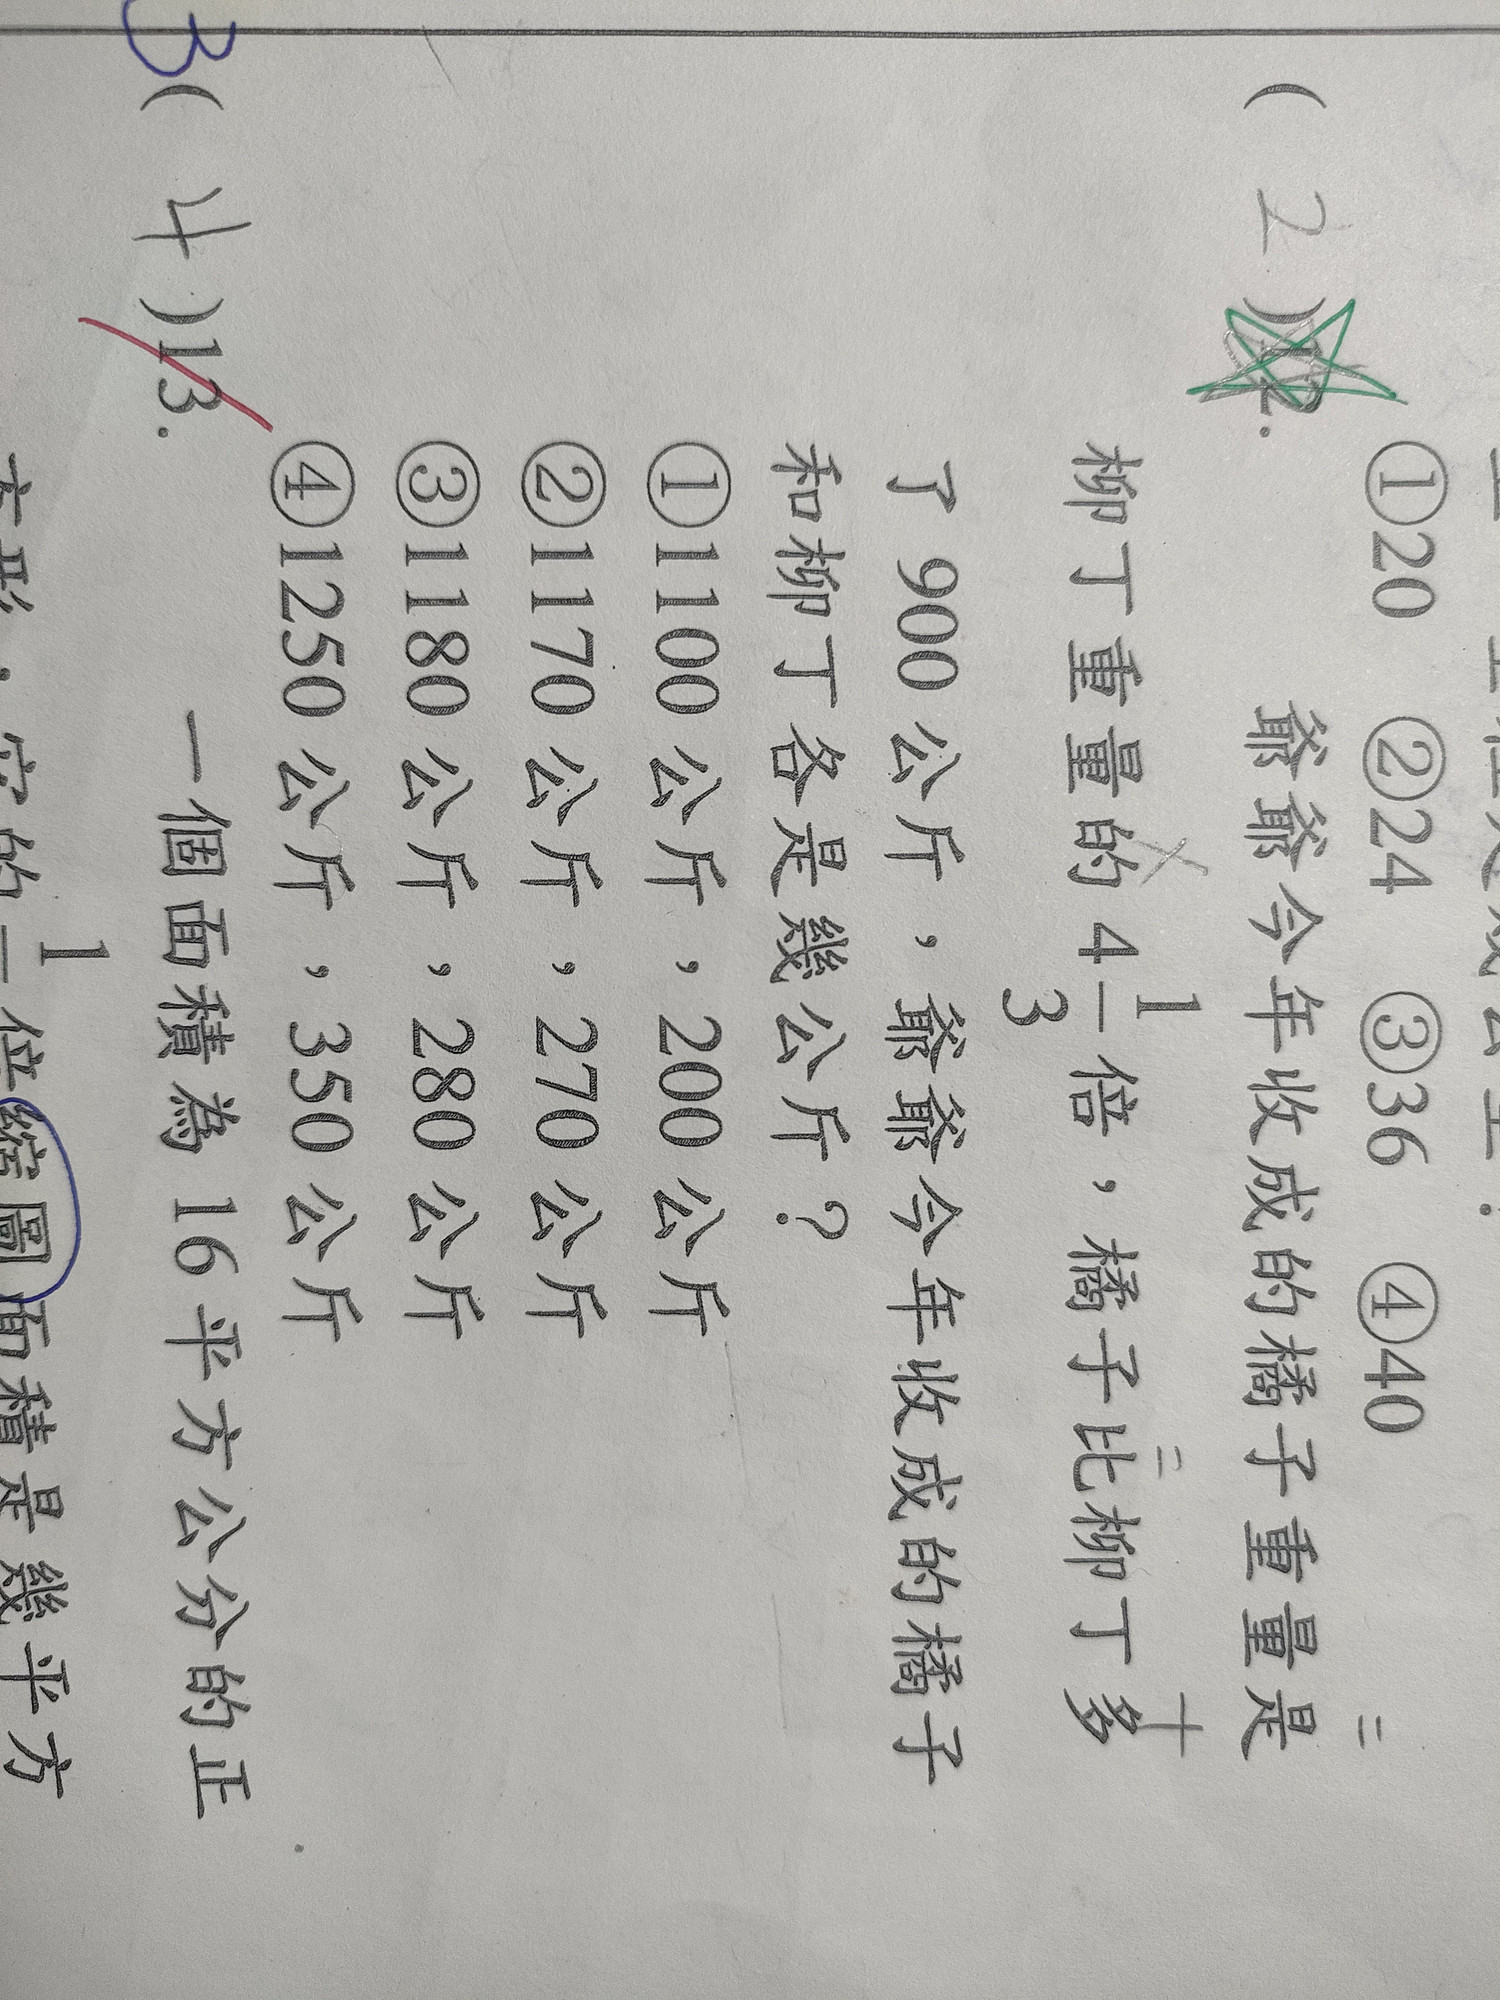 ①20 ②24 ③36 ④40
( 2 )12. 爺爺今年收成的橘子重量是
柳丁重量的 4 1/3 倍，橘子比柳丁多
了 900 公斤，爺爺今年收成的橘子
和柳丁各是幾公斤？
①1100 公斤，200 公斤
②1170 公斤，270 公斤
③1180 公斤，280 公斤
④1250 公斤，350 公斤
3( 4 )13. 一個面積為 16 平方公分的正